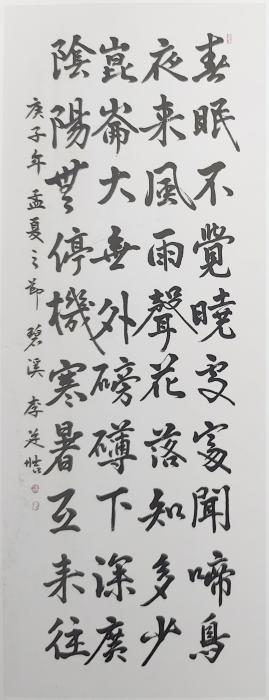 春眠不覺曉處處聞啼鳥
夜来風雨聲花落知多少
崑崙大無外磅礴下深廣
陰陽無停機寒暑互来往
庚子年孟夏之節 碧溪 李廷